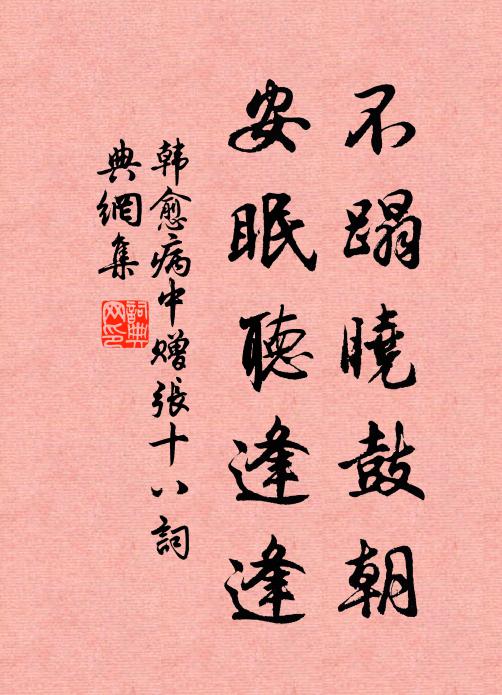 不蹋曉鼓朝
安眠聽逢逢
韩愈病中赠張十八詞
典網集
詞典網印